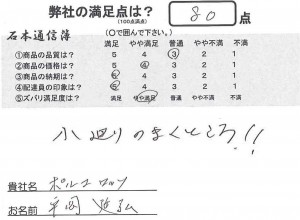 弊社の満足点は？ 80 点
(100点満点)
石本通信簿
(〇で囲んで下さい。)
満足 やや満足 普通 やや不満 不満
①商品の品質は？ 5 4 3 2 1
②商品の価格は？ 5 4 3 2 1
③商品の納期は？ 6 4 3 2 1
④配達員の印象は？ 5 4 3 2 1
⑤ズバリ満足度は？ 満足 やや満足 普通 やや不満 不満
小廻りのきくところ!!
貴社名 ポルコロッソ
お名前 平岡